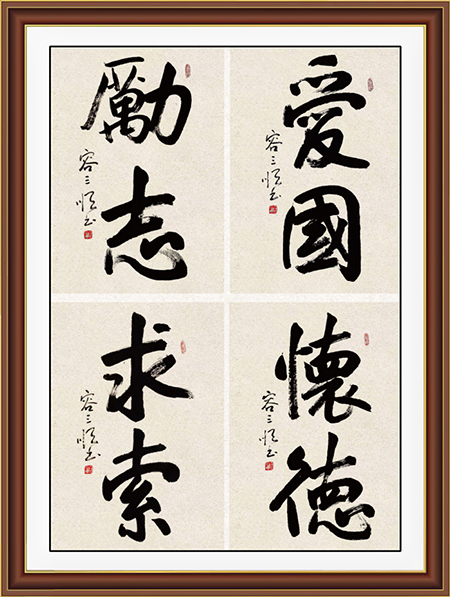 愛國
容三順书
勵志
容三順书
懷德
容三順书
求索
容三順书